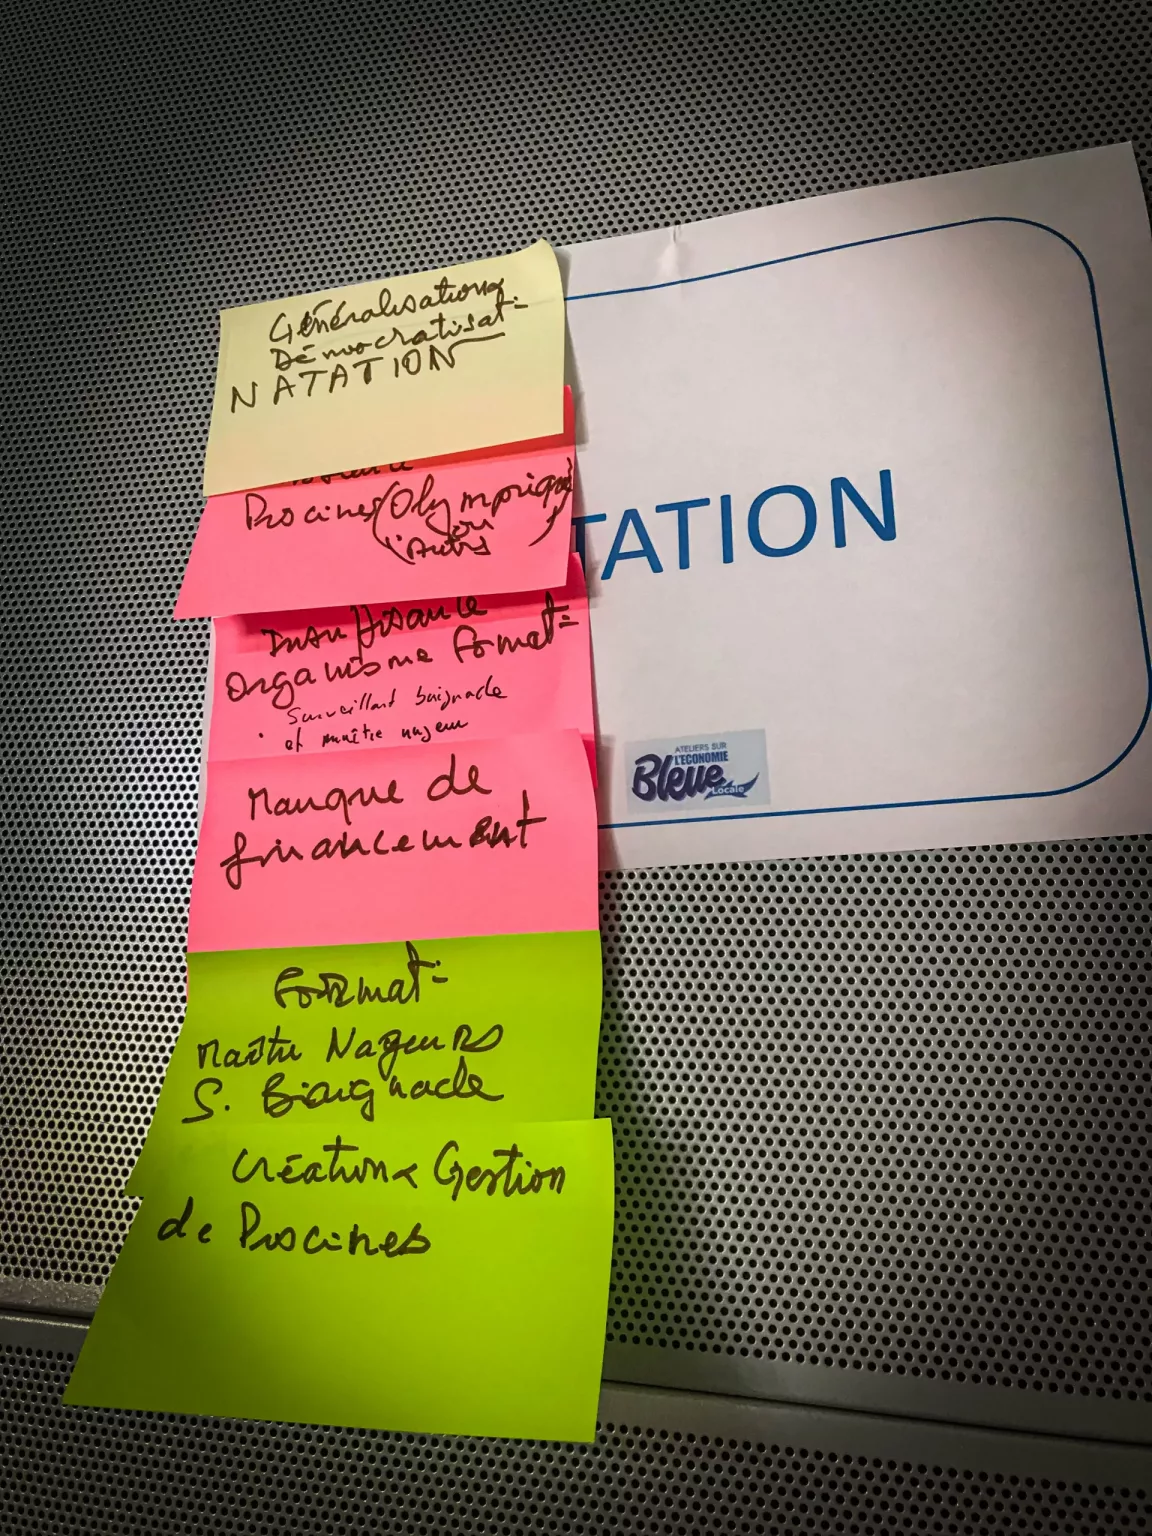 Généralisation &
Démocratisat°
NATATION
Piscines (Olympique
ou
Autres)
Insuffisance
organisme format°
Surveillant baignade
et maître nageur
Manque de
financement
Format°
Maître Nageurs
S. Baignade
Création & Gestion
de Piscines
TATION
ATELIERS SUR
L'ECONOMIE
Bleue
Locale